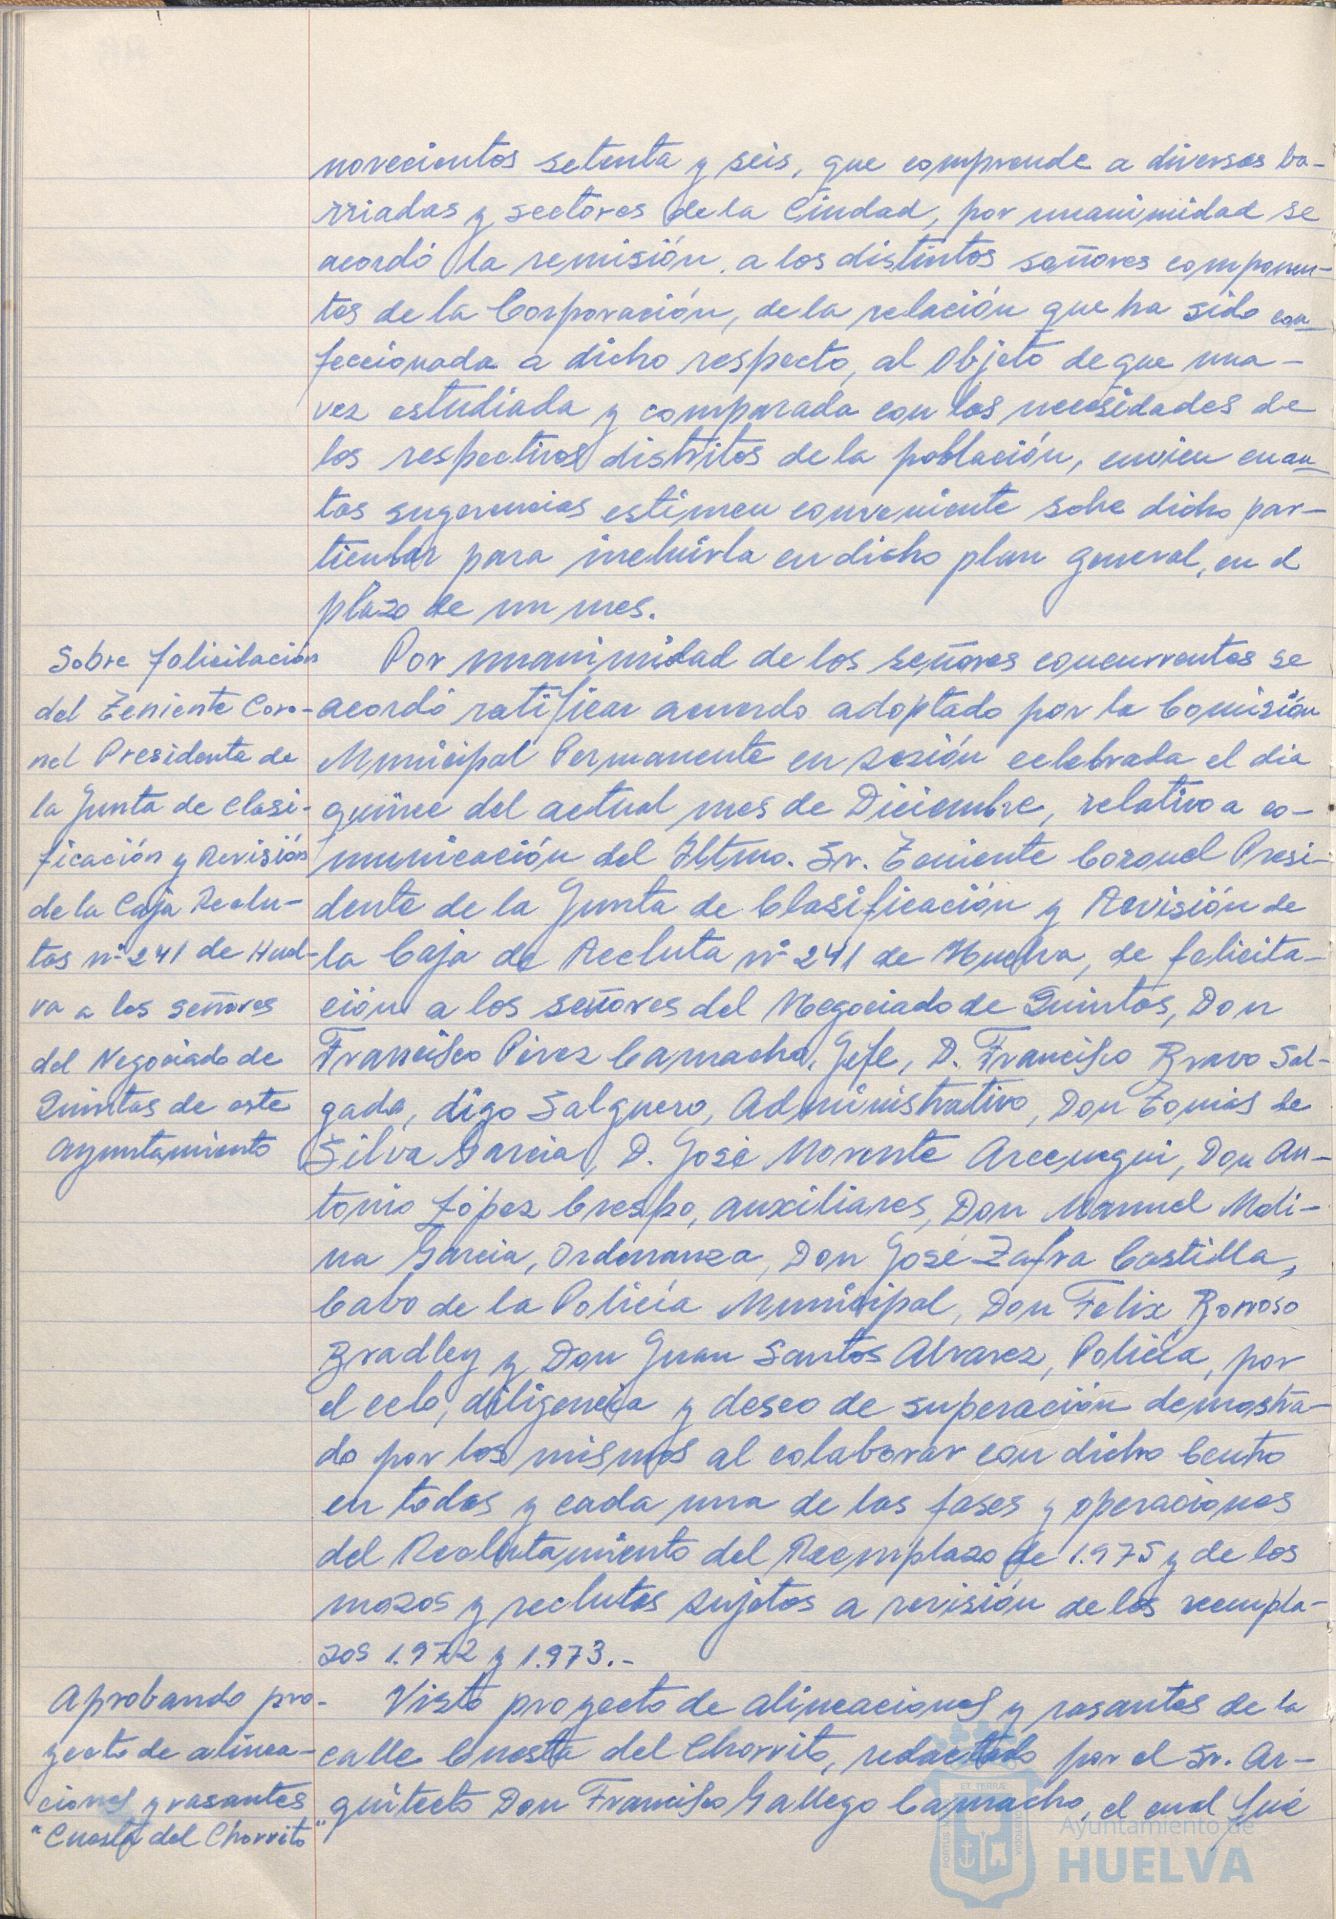 novecientos setenta y seis, que comprende a diversas ba-
rriadas y sectores de la Ciudad, por unanimidad se
acordó la remisión, a los distintos señores componen-
tes de la Corporación, de la relación que ha sido con
feccionada a dicho respecto, al objeto de que una-
vez estudiada y comparada con las necesidades de
los respectivos distritos de la población, envien cuan
tas sugerencias estimen conveniente sobre dicho par-
ticular para incluirla en dicho plan general, en el
plazo de un mes.
Sobre felicitación
del Teniente Coro-
nel Presidente de
la Junta de Clasi-
ficación y Revisión
de la Caja Reclu-
tas nº 241 de Huel-
va a los señores
del Negociado de
Quintas de este
Ayuntamiento
Por unanimidad de los señores concurrentes se
acordó ratificar acuerdo adoptado por la Comisión
Municipal Permanente en sesión celebrada el dia
quince del actual mes de Diciembre, relativo a co-
municación del Iltmo. Sr. Teniente Coronel Presi-
dente de la Junta de Clasificación y Revisión de
la Caja de Recluta nº 241 de Huelva, de felicita-
ción a los señores del Negociado de Quintas, Don
Francisco Pérez Camacho, Jefe, D. Francisco Bravo Sal-
gado, digo Salguero, Administrativo, Don Tomás de
Silva Garcia, D. José Morente Arcenegui, Don An-
tonio López Crespo, auxiliares, Don Manuel Moli-
na Garcia, Ordenanza, Don José Zafra Castilla,
Cabo de la Policía Municipal, Don Felix Borroso
Bradley y Don Juan Santos Alvarez, Policía, por
el celo, diligencia y deseo de superación demostra-
do por los mismos al colaborar con dicho Centro
en todas y cada una de las fases y operaciones
del Reclutamiento del Reemplazo de 1.975 y de los
mozos y reclutas sujetos a revisión de los reempla-
zos 1.972 y 1.973.-
Aprobando pro-
yecto de alinea-
ciones y rasantes
"Cuesta del Chorrito"
Visto proyecto de alineaciones y rasantes de la
calle Cuesta del Chorrito, redactado por el Sr. Ar-
quitecto Don Francisco Gallego Camacho, el cual fué
Ayuntamiento de
HUELVA